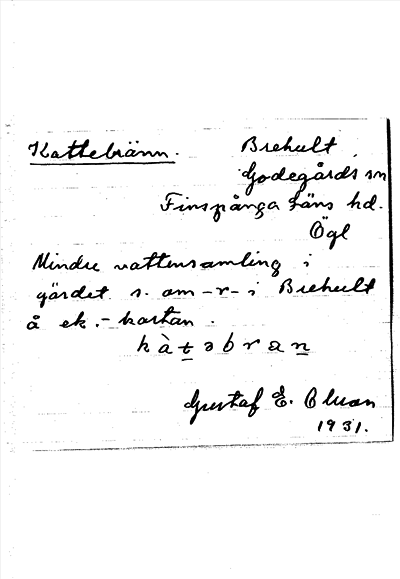 Kattebränn. Brehult
Godegårds sn
Finspånga läns hd.
Ögl
Mindre vattensamling i
gärdet s. om -r- i Brehult
å ek.-kartan.
k à t ə b r a n
Gustaf E.
1931.